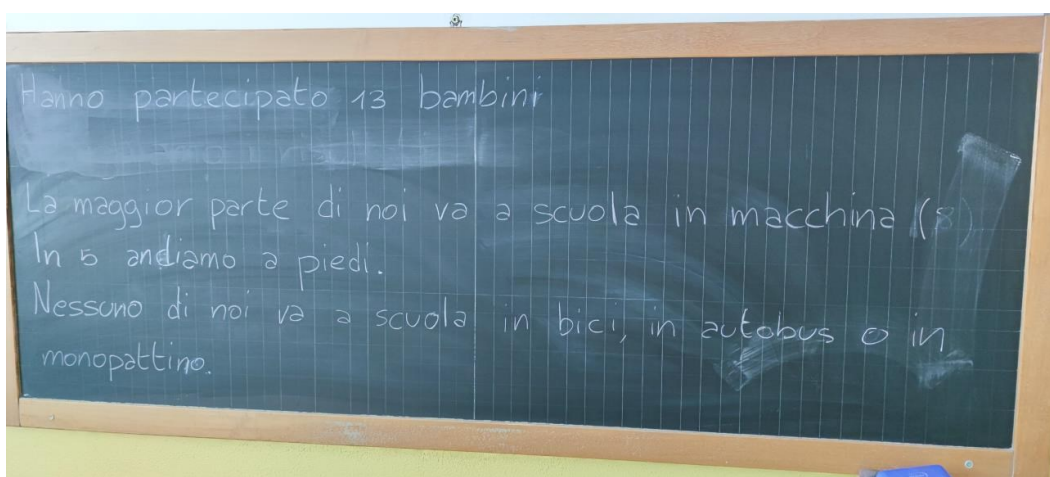 Hanno partecipato 13 bambini
La maggior parte di noi va a scuola in macchina (8)
In 5 andiamo a piedi.
Nessuno di noi va a scuola in bici, in autobus o in
monopattino.